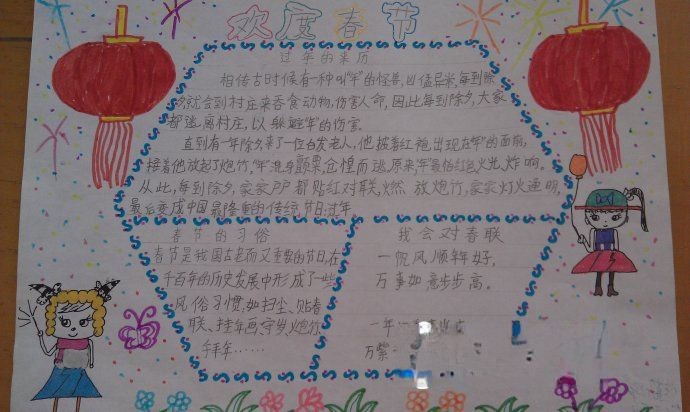 欢度春节
过年的来历
相传古时候有一种叫“年”的怪兽,凶猛异常,每到除
夕就会到村庄来吞食动物,伤害人命,因此每到除夕,大家
都逃离村庄,以躲避“年”的伤害。
直到有一年除夕来了一位白发老人,他披着红袍出现在“年”的面前,
接着他放起了炮竹,“年”混身颤栗,仓惶而逃,原来,“年”最怕红色,火光,炸响。
从此,每到除夕,家家户户都贴红对联,燃放炮竹,家家灯火通明,
最后变成中国最隆重的传统节日:过年
春节的习俗
春节是我国古老而又重要的节日,在
千百年的历史发展中形成了一些
风俗习惯,如扫尘、贴春
联、挂年画、守岁、炮竹、
拜年……
我会对春联
一帆风顺年年好,
万事如意步步高。
一年
万紫